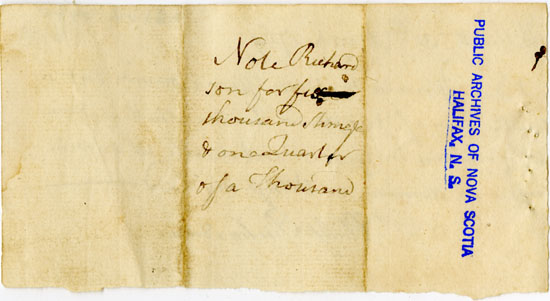 Note Richard
son for
thousand
& one Quarter
of a Thousand
PUBLIC ARCHIVES OF NOVA SCOTIA
HALIFAX, N. S.